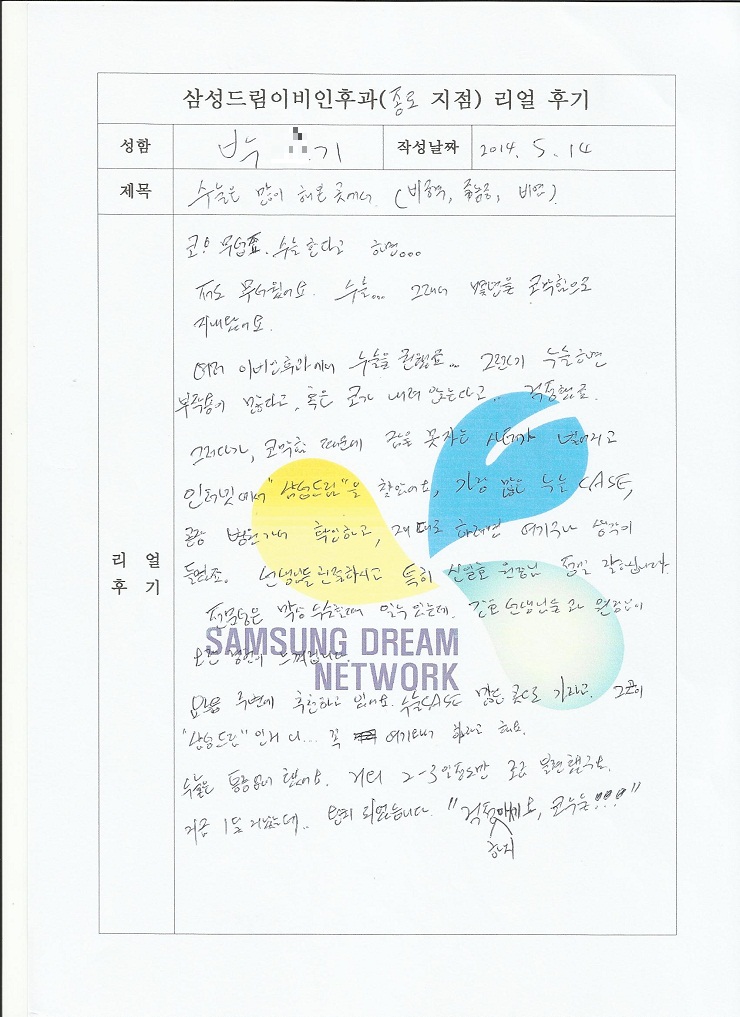 삼성드림이비인후과(종로 지점) 리얼 후기
성함 박 기 작성날짜 2014. 5. 14
제목 수술은 많이 해본 곳에서 (비중격, 축농증, 비염)
코! 무섭죠. 수술한다고 하면...
저도 무서웠어요. 수술... 그래서 몇년을 코막힘으로
지내왔어요.
여러 이비인후과에서 수술을 권했죠... 수술하면
부작용이 많다고, 혹은 코가 내려 앉는다고.. 걱정했죠.
그러다가, 코막힘 때문에 잠을 못자는 사태가 벌어지고
인터넷에서 "삼성드림"을 찾았어요, 가장 많은 수술 CASE,
병원가서 확인하고, 제대로 하려면 여기구나 생각이
들었죠. 선생님들 친절하시고 특히 신일호 원장님 정말 감사합니다.
전문성은 막상 수술할때 알수 있는데. 간호선생님들과 원장님이
오랜 경험이 느껴집니다.
SAMSUNG DREAM
NETWORK
요즘 주변에 추천하고 있어요. 수술CASE 많은 곳으로 가라고. 그곳이
"삼성드림" 인거니... 꼭 여기로 가라고 해요.
수술은 통증없이 했어요. 거의 2-3일정도만 조금 불편했구요.
지금 1달 지났는데.. 완쾌 되었습니다. "걱정하지마세요, 코수술!!!"
리얼
후기